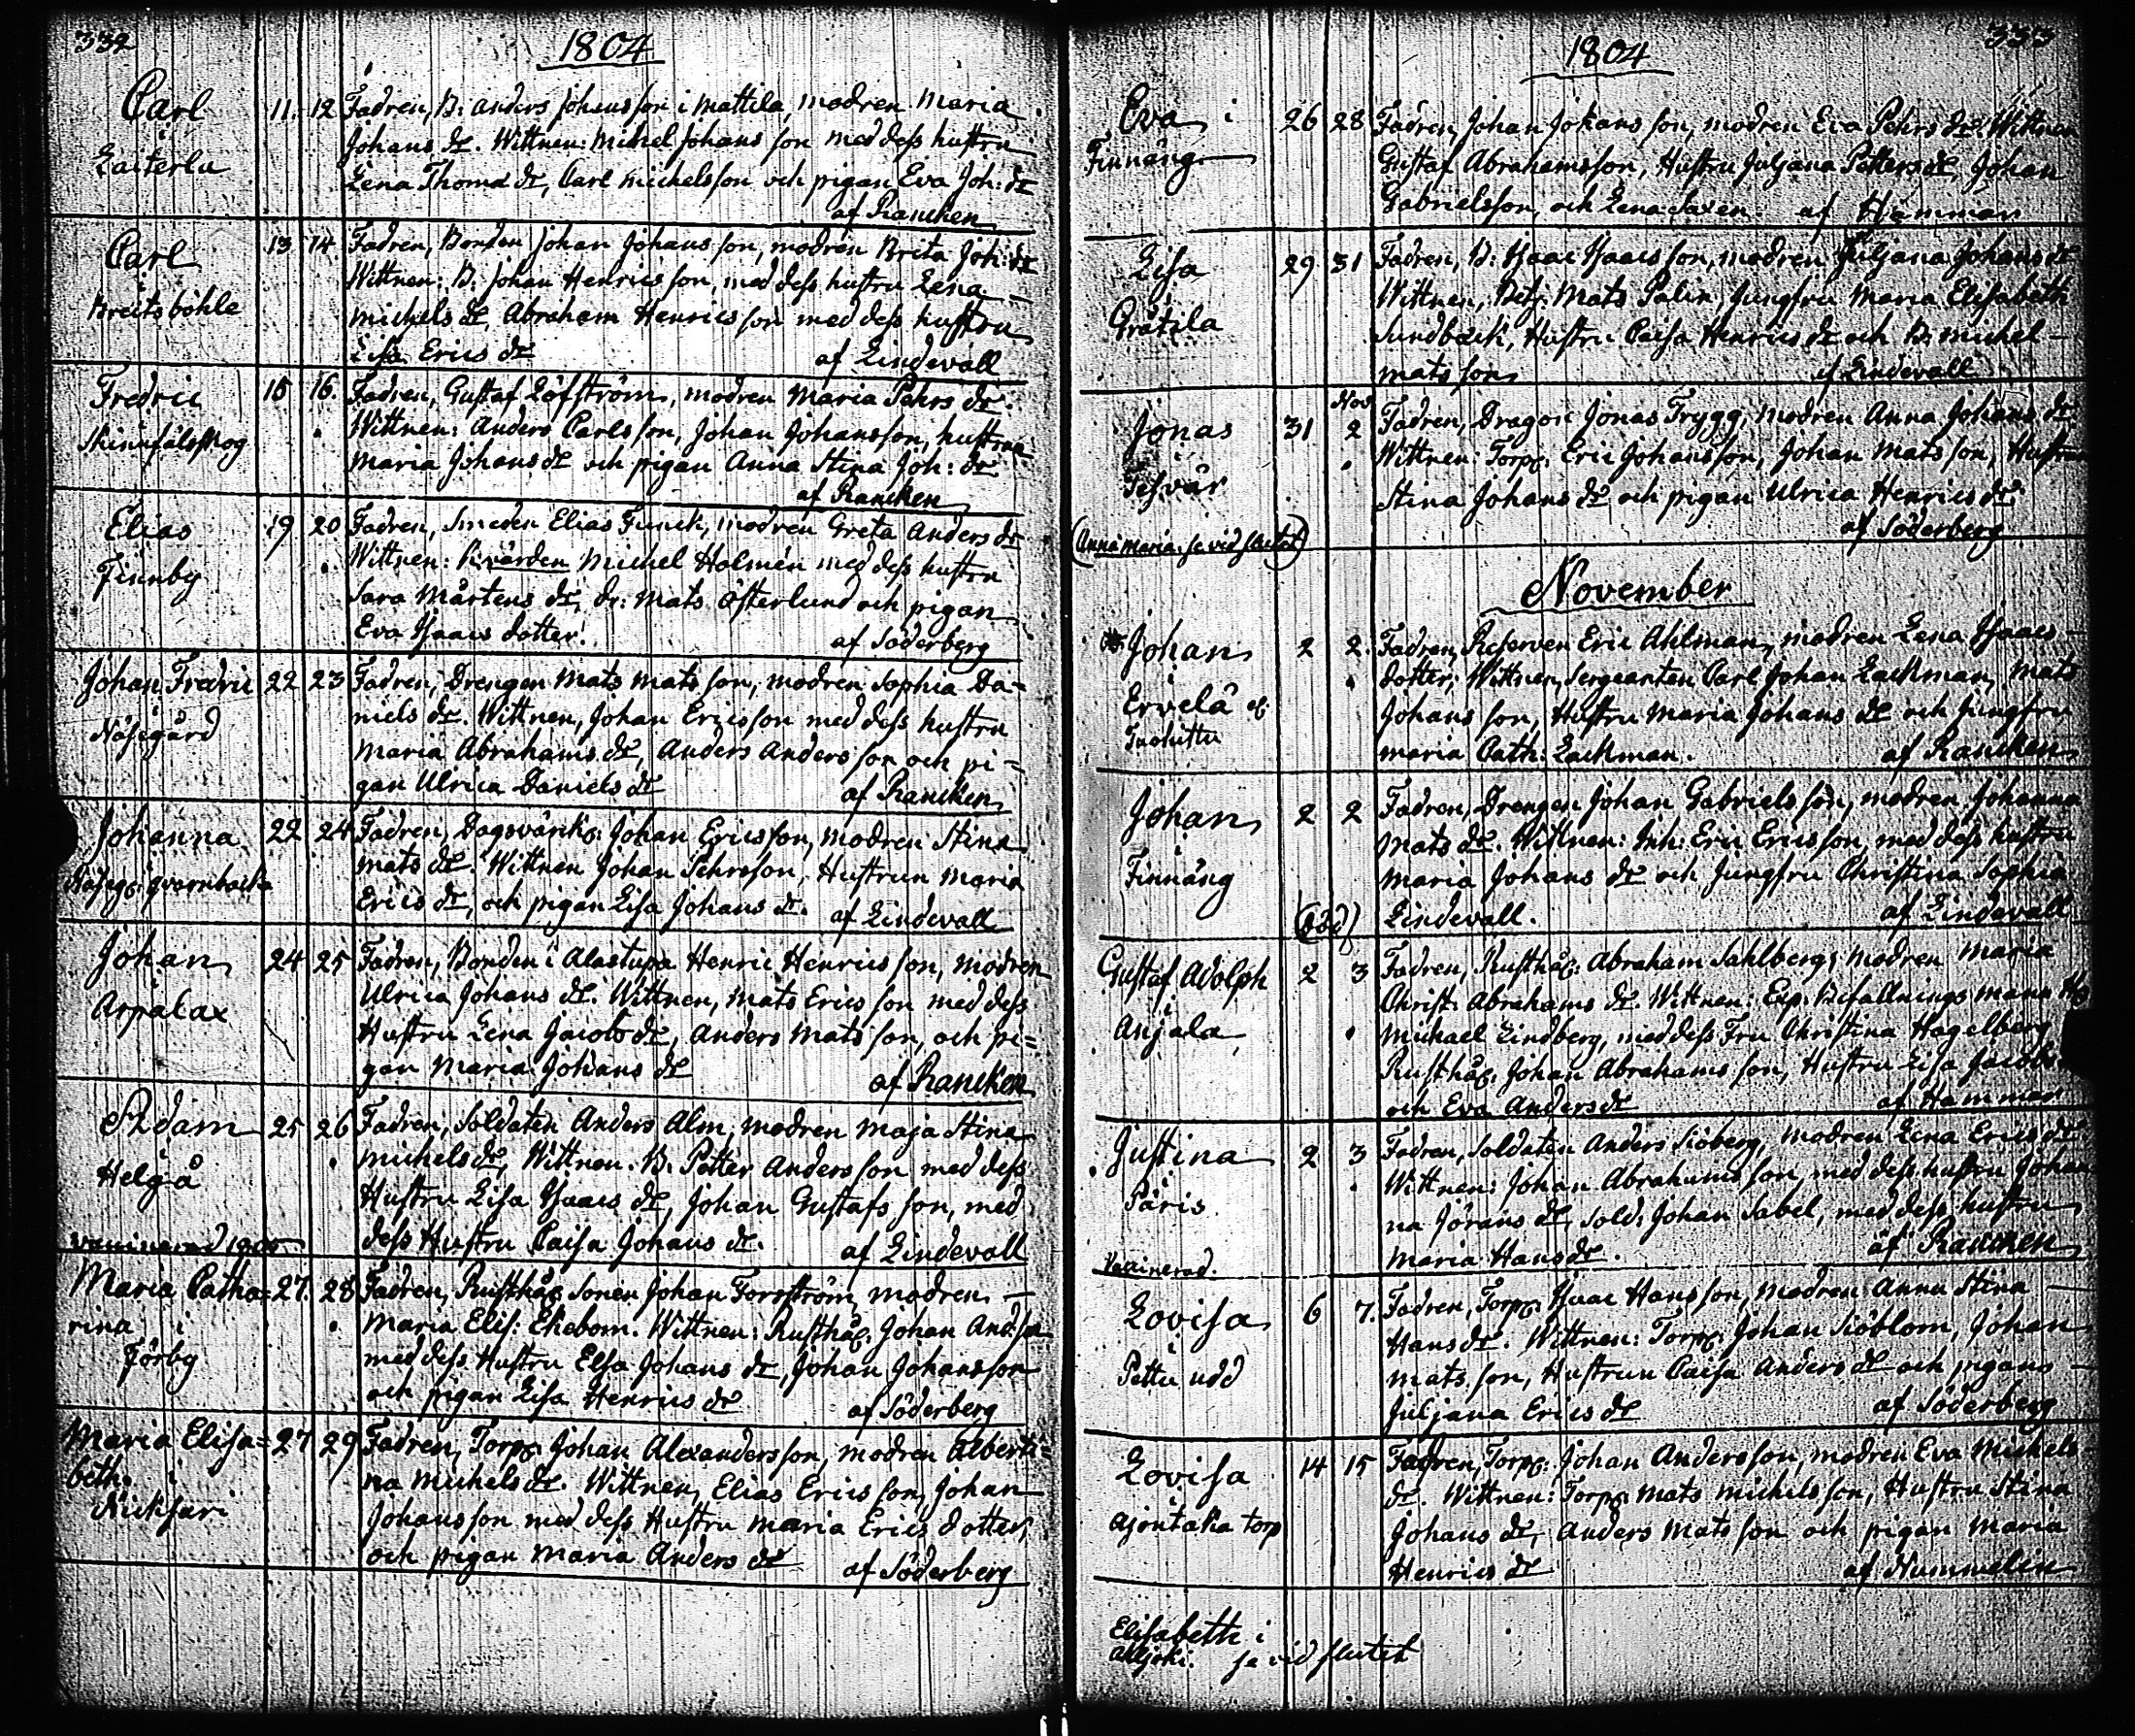 332
1804
Carl 11. 12 Fadren, B: Anders Johansson i Mattila, modren Maria
Laiterla Johans dr. Wittnen: Michel Johans son med dess hustru
Lena Thomæ dr, Carl Michelsson och pigan Eva Joh: dr
af Rancken
Carl 13 14 Fadren, Bonden Johan Johans son, modren Brita Joh: dr
Breitsböhle Wittnen: B: Johan Henrics son, med dess hustru Lena
Michels dr, Abraham Henrics son med dess hustru
Lisa Erics dr af Lindevall
Fredric 15 16. Fadren, Gustaf Löfström, modren Maria Pehrs dr.
Skinnfälsskog Wittnen: Anders Carlsson, Johan Johansson, hustrun
Maria Johans dr och pigan Anna Stina Joh: dr
af Rancken
Elias 19 20 Fadren, Smeden Elias Funck, modren Greta Anders dr
Finnby Wittnen: Michel Holmén med dess hustru
Sara Mårtens dr, dr: Mats Österlund och pigan
Eva Isaacs dotter. af Söderberg
Johan Fredric 22 23 Fadren, Drengen Mats Mats son, modren Sophia Da=
Näsegård niels dr. Wittnen, Johan Ericsson med dess hustru
Maria Abrahams dr, Anders Anders son och pi=
gan Ulrica Daniels dr af Rancken
Johanna 22 24 Fadren, Dagsvärck: Johan Ericsson, modren Stina
Näseg: qvarnbacka Mats dr. Wittnen Johan Pehrsson, Hustrun Maria
Erics dr, och pigan Lisa Johans dr. af Lindevall
Johan 24 25 Fadren, Bonden i Alastupa Henric Henrics son, modren
Arpalax Ulrica Johans dr. Wittnen, Mats Erics son med dess
Hustru Lena Jacobs dr, Anders Mats son, och pi=
gan Maria Johans dr af Rancken
Adam 25 26 Fadren, Soldaten Anders Alm, modren Maja Stina
Helgå Michels dr, Wittnen. B. Petter Anders son med dess
Hustru Lisa Isaacs dr, Johan Gustafs son, med
vaccinerad 1805 dess Hustru Caisa Johans dr. af Lindevall
Maria Catha= 27. 28 Fadren, Rusthåls Sonen Johan Forsström, modren
rina i Maria Elis: Ekebom. Wittnen: Rusthåll: Johan And:son
Förby med dess Hustru Elsa Johans dr, Johan Johansson
och pigan Lisa Henrics dr af Söderberg
Maria Elisa= 27 29 Fadren, Torp: Johan Alexandersson, modren Alberti=
beth i na Michels dr. Wittnen, Elias Erics son, Johan
Nicksari Johansson med dess Hustru Maria Erics dotter,
och pigan Maria Anders dr af Söderberg
333
1804
Eva i 26 28 Fadren, Johan Johans son, modren Eva Pehrs dr. Wittnen
Finnäng Gustaf Abrahamsson, Hustru Juljana Petters dr, Johan
Gabrielsson, och Lena Saxen. af Hammar
Lisa 29 31 Fadren, B: Isaac Isaacs son, modren Juljana Johans dr
Gråtila Wittnen, Betj. Mats Palin, Jungfru Maria Elisabeth
Sundbäck, Hustru Caisa Henrics dr och B: Michel
Mats son af Lindevall
Nov.
Jonas 31 2 Fadren, Dragon Jonas Trygg, modren Anna Johans dr
Tesvär Wittnen: Torp: Eric Johansson, Johan Mats son, Hustrun
Stina Johans dr och pigan Ulrica Henrics dr
af Söderberg
(Anna Maria, se vid slutet)
November
Johan 2 2. Fadren, Reserven Eric Ahlman, modren Lena Isaacs
Ervelä dotter, Wittnen, Sergeanten Carl Johan Lackman, Mats
Johans son, Hustru Maria Johans dr och Jungfru
Maria Cath: Lackman. af Rancken
Johan 2 2 Fadren, Drengen Johan Gabriels son, modren Johanna
Finnäng Mats dr. Wittnen: Inh: Eric Ericsson, med dess hustru
Maria Johans dr och Jungfru Christina Sophia
Lindevall. af Lindevall
Gustaf Adolph 2 3 Fadren, Rusthåll: Abraham Sahlberg, modren Maria
Anjala Christ: Abrahams dr. Wittnen: Exp: Befallnings mann H:
Michael Lindberg, med dess Fru Christina Hagelberg
Rusthåll: Johan Abrahams son, Hustru Lisa Jacobs
och Eva Anders dr af Hammar
Justina 2 3 Fadren, Soldaten Anders Siöberg, modren Lena Erics dr
Påris Wittnen: Johan Abrahams son, med dess hustru Johan
na Jörans dr, Sold: Johan Sabel, med dess hustru
Maria Hans dr. af Rancken
Vaccinerad.
Lovisa 6 7. Fadren, Torp: Isaac Hans son, modren Anna Stina
Pettu udd Hans dr. Wittnen: Torp: Johan Siöblom, Johan
Mats son, Hustrun Caisa Anders dr och pigan
Juljana Erics dr af Söderberg
Lovisa 14 15 Fadren, Torp: Johan Andersson, modren Eva Michels
Ajontaka torp dr. Wittnen: Torp: Mats Michels son, Hustru Stina
Johans dr, Anders Mats son och pigan Maria
Henrics dr af Nummelin
Elisabeth i
se vid slutet